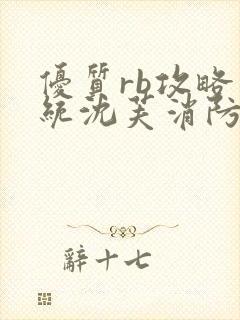 優質rb攻略
統沈芙消防
辭十七